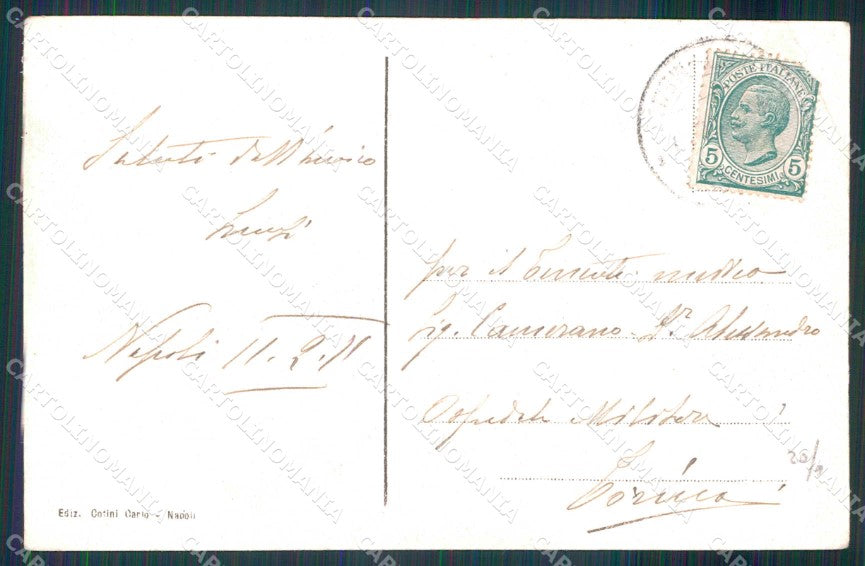 Saluti dall'amico
Luigi
Napoli 11.2.11
Ediz. Cotini Carlo - Napoli
POSTE ITALIANE
5 CENTESIMI 5
per il Tenente medico
Sig. Camerano Dr. Alessandro
Ospedale Militare
Torino
CARTOLINOMANIA